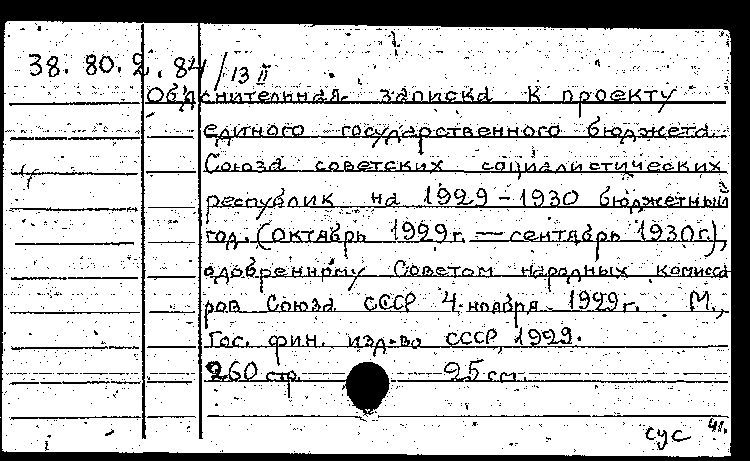 38. 80. 2. 84 / 13 II
Объяснительная записка к проекту
единого государственного бюджета
Союза советских социалистических
республик на 1929-1930 бюджетный
год. (октябрь 1929г. — сентябрь 1930г.),
одобренному Советом народных комисса
ров Союза СССР 4 ноября 1929г. М.,
Гос. фин. изд-во СССР, 1929.
260 стр. 25 см.
сус